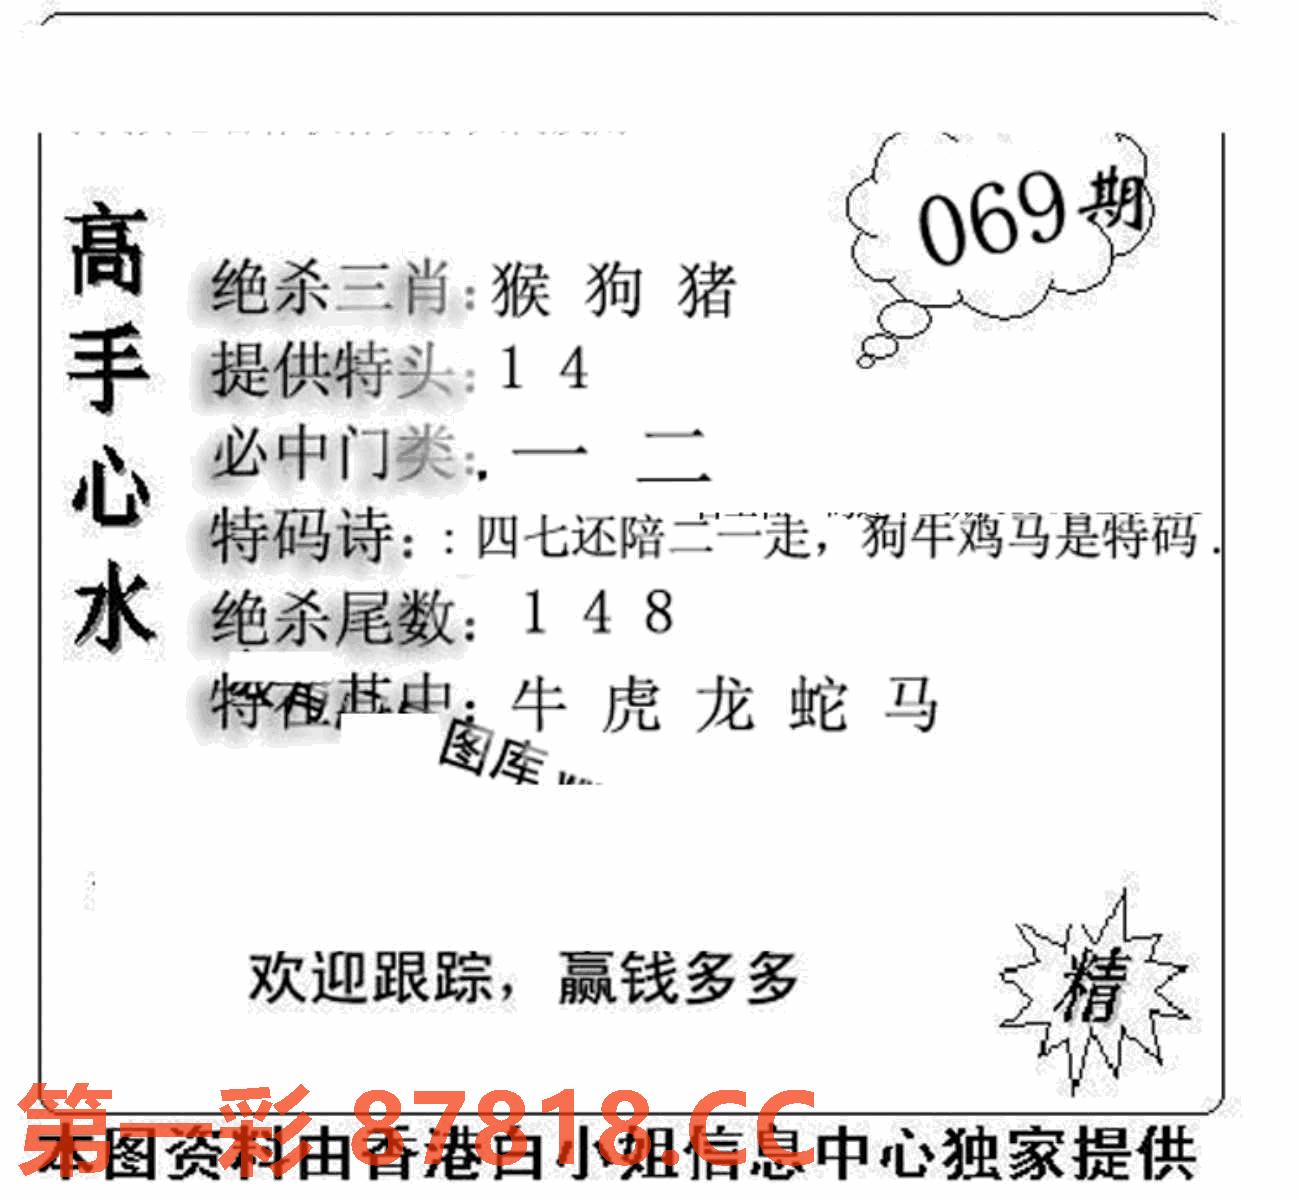 069期
高手心水
绝杀三肖:猴 狗 猪
提供特头:1 4
必中门类:.一 二
特码诗::四七还陪二一走，狗牛鸡马是特码.
绝杀尾数:1 4 8
特在其中:牛 虎 龙 蛇 马
图库
欢迎跟踪，赢钱多多
精
第一彩 87818.CC
本图资料由香港白小姐信息中心独家提供